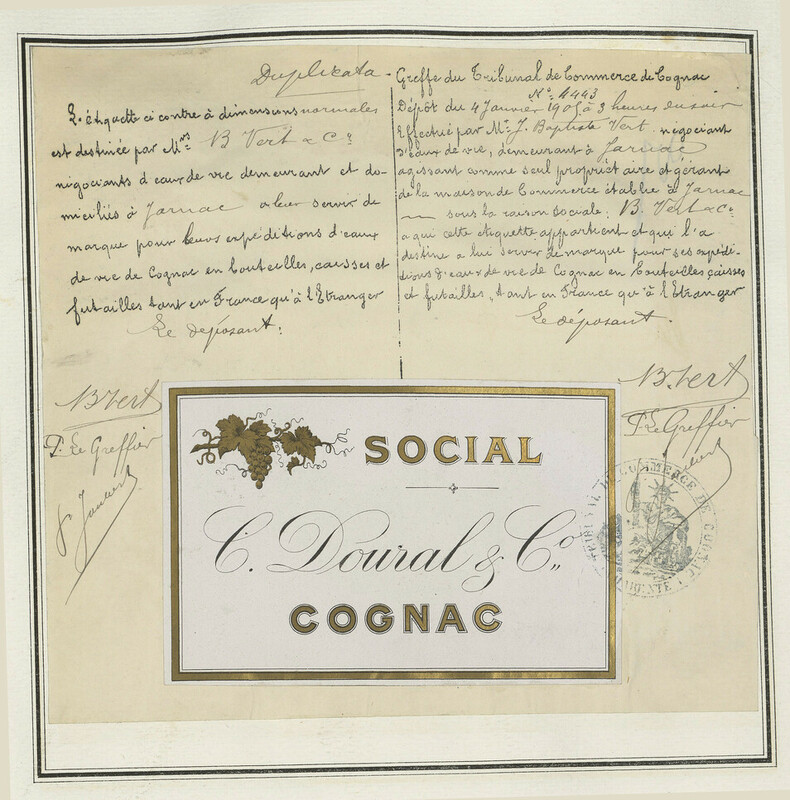 Duplicata -
L'étiquette ci contre à dimensions normales
est destinée par Mrs B Vert & Cie
négociants d'eaux de vie demeurant et do-
miciliés à Jarnac à leur servir de
marque pour leurs expéditions d'eaux
de vie de Cognac en bouteilles, caisses et
futailles tant en France qu'à l'Etranger
Le déposant:
B Vert
P. Le Greffier
Greffe du Tribunal de Commerce de Cognac
No 4443
Dépôt du 4 Janvier 1905 à 3 heures du soir
Effectué par Mr J. Baptiste Vert négociant
d'eaux de vie, demeurant à Jarnac
agissant comme seul propriétaire et gérant
de la maison de Commerce établie à Jarnac
sous la raison sociale: B. Vert & Cie
a qui cette étiquette appartient et qui l'a
destine a lui servir de marque pour ses expédi-
tions d'eaux de vie de Cognac en bouteilles caisses
et futailles, tant en France qu'à l'Etranger
Le déposant.
B. Vert
P. Le Greffier
SOCIAL
C. Doural & Co
COGNAC
TRIBUNAL DE COMMERCE DE COGNAC
CHARENTE